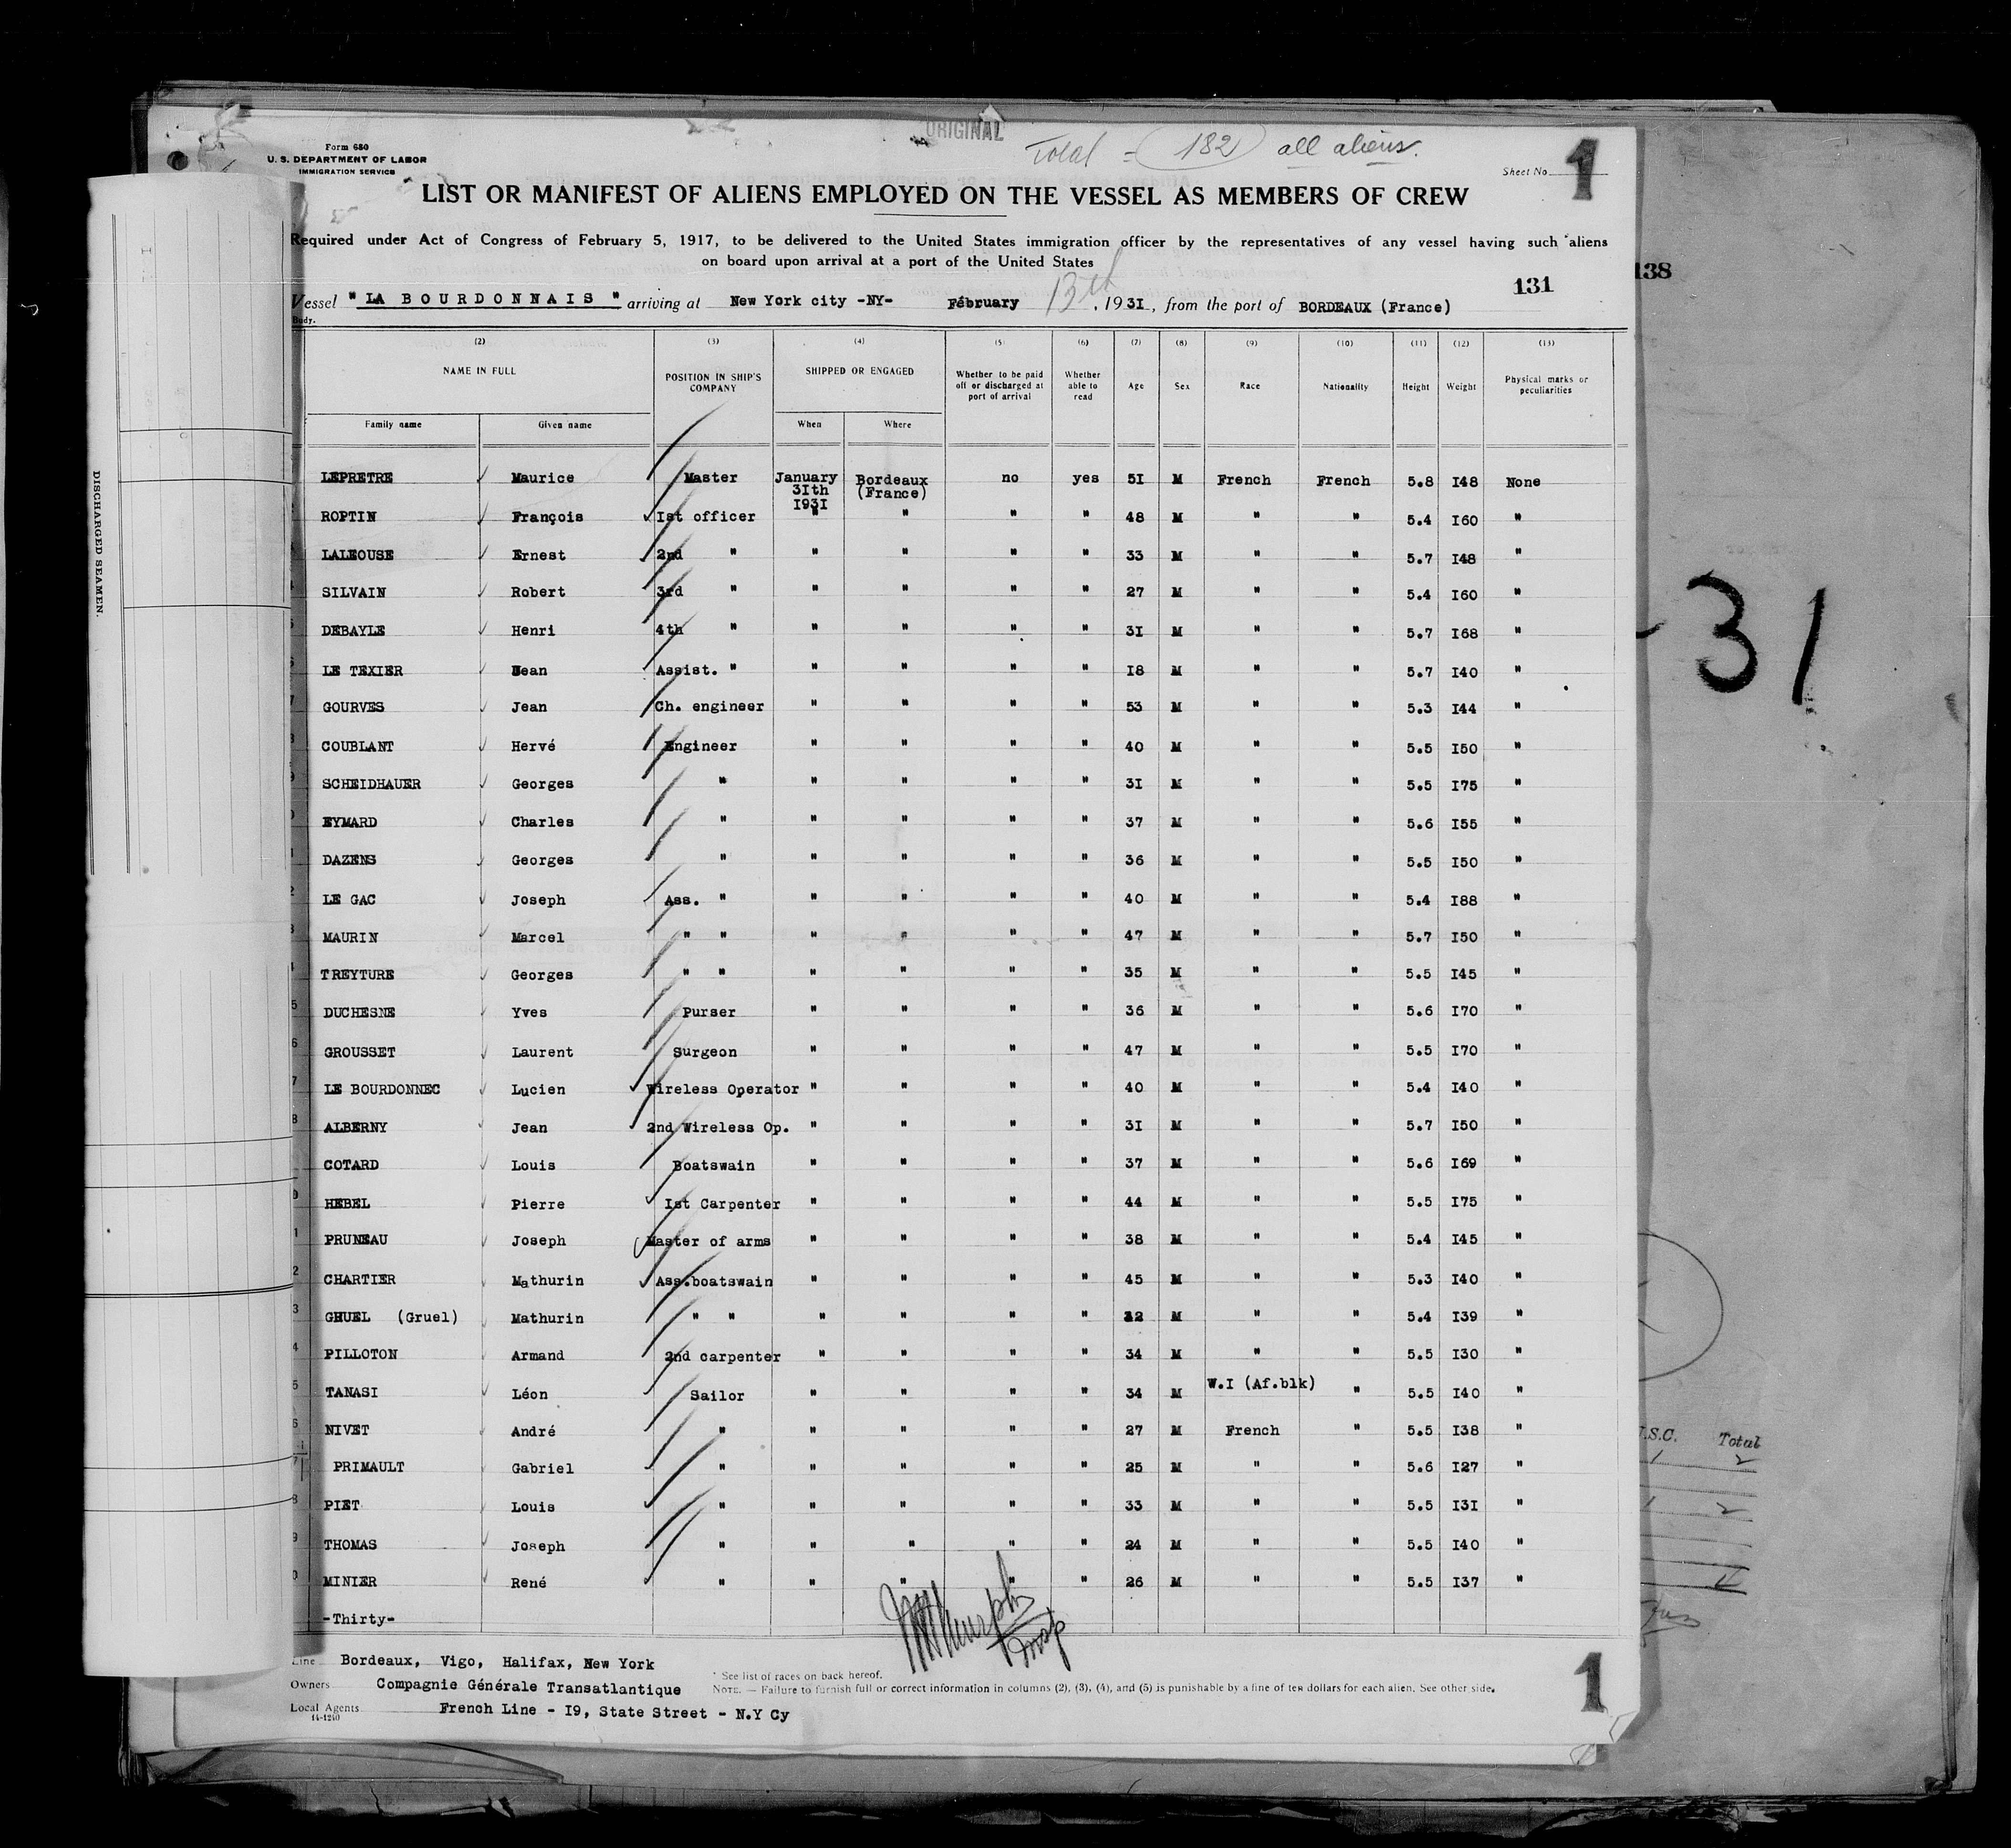 ORIGINAL
Total = 182 all aliens.
Form 680
U. S. DEPARTMENT OF LABOR
IMMIGRATION SERVICE
Sheet No. 1
LIST OR MANIFEST OF ALIENS EMPLOYED ON THE VESSEL AS MEMBERS OF CREW
Required under Act of Congress of February 5, 1917, to be delivered to the United States immigration officer by the representatives of any vessel having such aliens
on board upon arrival at a port of the United States
131
138
Vessel " LA BOURDONNAIS " arriving at New York city -NY- Fébruary 13th, 1931, from the port of BORDEAUX (France)
Body.
(2) (3) (4) (5) (6) (7) (8) (9) (10) (11) (12) (13)
NAME IN FULL POSITION IN SHIP'S COMPANY SHIPPED OR ENGAGED Whether to be paid off or discharged at port of arrival Whether able to read Age Sex Race Nationality Height Weight Physical marks or peculiarities
Family name Given name When Where
LEPRETRE Maurice Master January 3Ith I93I Bordeaux (France) no yes 5I M French French 5.8 I48 None
ROPTIN François Ist officer " " " " 48 M " " 5.4 I60 "
LALEOUSE Ernest 2nd " " " " " 33 M " " 5.7 I48 "
SILVAIN Robert 3rd " " " " " 27 M " " 5.4 I60 "
DEBAYLE Henri 4th " " " " " 3I M " " 5.7 I68 "
LE TEXIER Jean Assist. " " " " " I8 M " " 5.7 I40 "
GOURVES Jean Ch. engineer " " " " 53 M " " 5.3 I44 "
COUBLANT Hervé Engineer " " " " 40 M " " 5.5 I50 "
SCHEIDHAUER Georges " " " " " 3I M " " 5.5 I75 "
EYMARD Charles " " " " " 37 M " " 5.6 I55 "
DAZENS Georges " " " " " 36 M " " 5.5 I50 "
LE GAC Joseph Ass. " " " " " 40 M " " 5.4 I88 "
MAURIN Marcel " " " " " " 47 M " " 5.7 I50 "
TREYTURE Georges " " " " " " 35 M " " 5.5 I45 "
DUCHESNE Yves Purser " " " " 36 M " " 5.6 I70 "
GROUSSET Laurent Surgeon " " " " 47 M " " 5.5 I70 "
LE BOURDONNEC Lucien Wireless Operator " " " " 40 M " " 5.4 I40 "
ALBERNY Jean 2nd Wireless Op. " " " " 3I M " " 5.7 I50 "
COTARD Louis Boatswain " " " " 37 M " " 5.6 I69 "
HEBEL Pierre Ist Carpenter " " " " 44 M " " 5.5 I75 "
PRUNEAU Joseph Master of arms " " " " 38 M " " 5.4 I45 "
CHARTIER Mathurin Ass.boatswain " " " " 45 M " " 5.3 I40 "
GHUEL (Gruel) Mathurin " " " " " " M " " 5.4 I39 "
PILLOTON Armand 2nd carpenter " " " " 34 M " " 5.5 I30 "
TANASI Léon Sailor " " " " 34 M W.I (Af.blk) " 5.5 I40 "
NIVET André " " " " " 27 M French " 5.5 I38 "
PRIMAULT Gabriel " " " " " 25 M " " 5.6 I27 "
PIET Louis " " " " " 33 M " " 5.5 I3I "
THOMAS Joseph " " " " " 24 M " " 5.5 I40 "
MINIER René " " " " " 26 M " " 5.5 I37 "
-Thirty-
Line Bordeaux, Vigo, Halifax, New York
Owners Compagnie Générale Transatlantique
Local Agents French Line - I9, State Street - N.Y Cy
14-1240
* See list of races on back hereof.
NOTE. — Failure to furnish full or correct information in columns (2), (3), (4), and (5) is punishable by a fine of ten dollars for each alien. See other side.
1
DISCHARGED SEAMEN.
31
Total